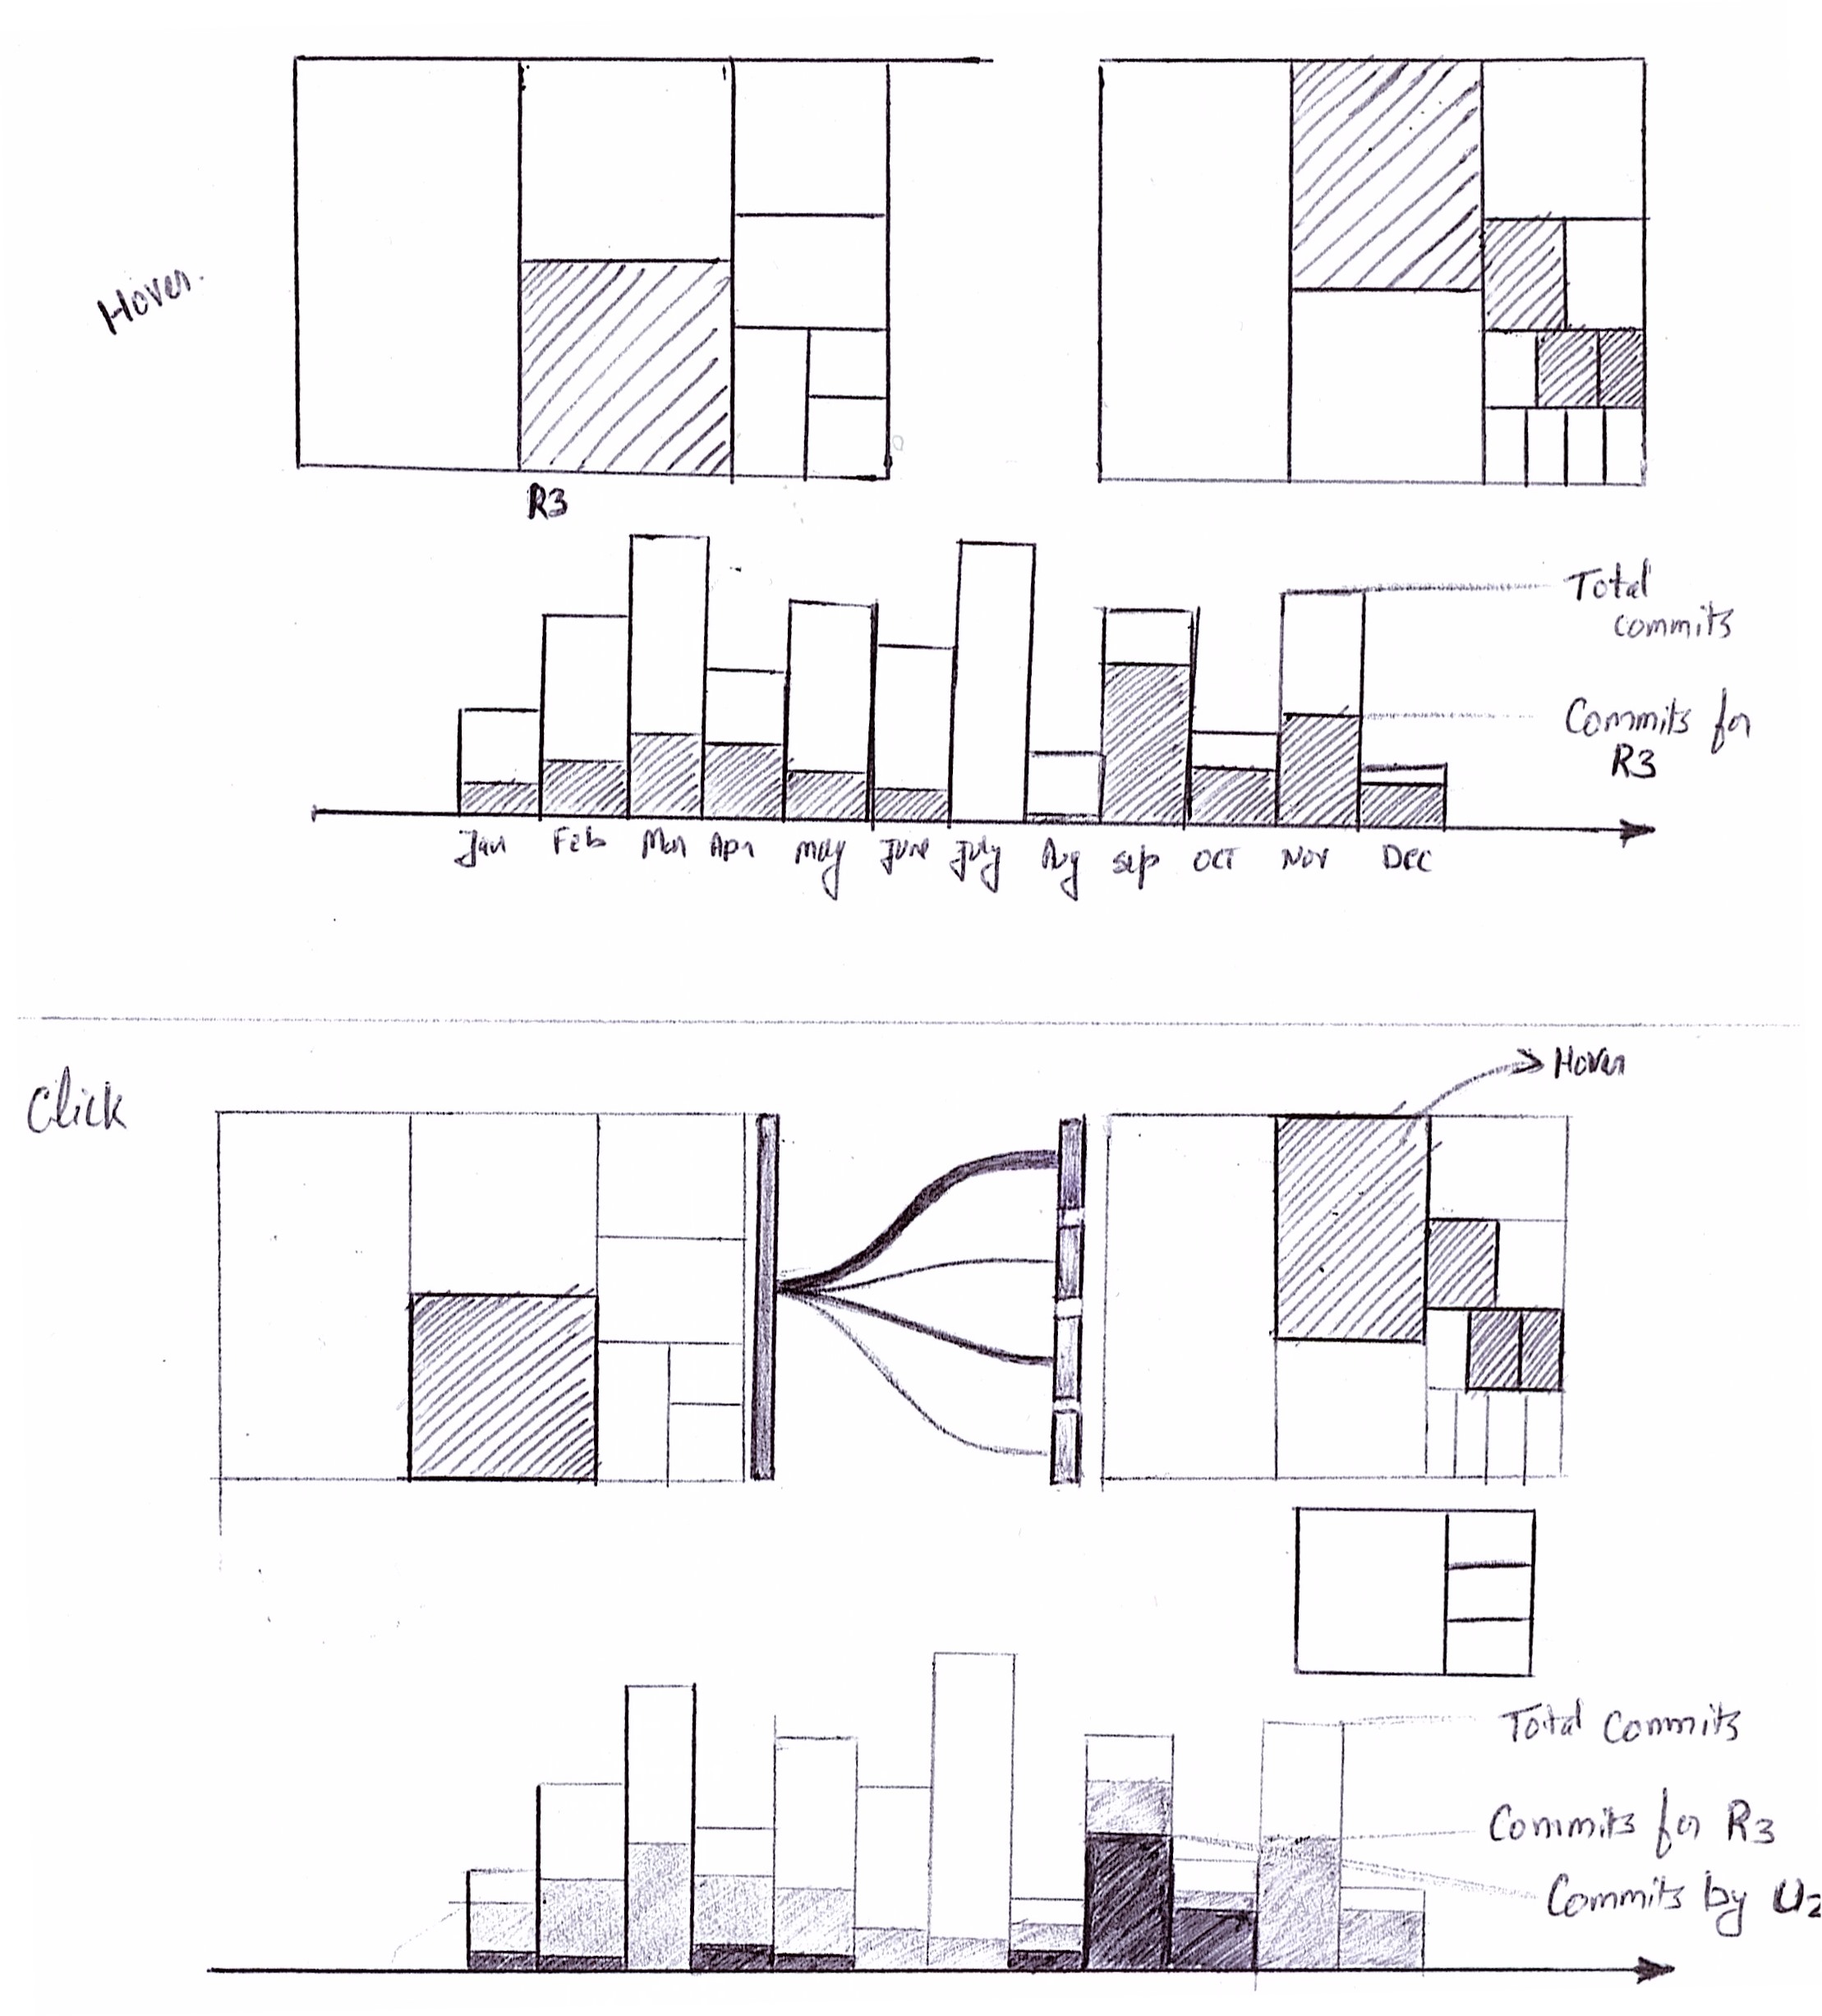 Hover.
R3
Total
commits
Commits for
R3
Jan Feb Mar Apr may June July Aug sep OCT Nov DEC
Click
Hover
Total Commits
Commits for R3
Commits by U2